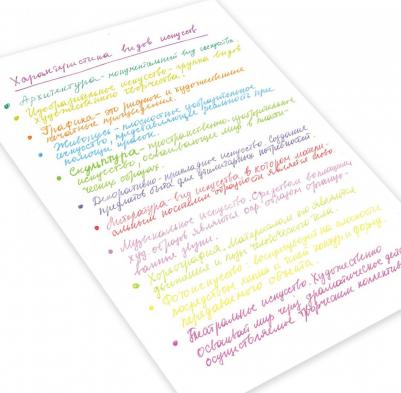 Характеристика видов искусств
Архитектура - монументальный вид искусства
Изобразительное искусство - группа видов
художественного творчества:
Графика - это рисунок и художественные
печатные произведения.
Живопись - плоскостное изобразительное
искусство, представляющее реальность при
помощи красок.
Скульптура - пространственно-изобразительное
искусство, осваивающее мир в пласти-
ческих образах.
Декоративно-прикладное искусство. Создание
предметов быта для утилитарных потребностей.
Литература - вид искусства, в котором матери-
альным носителем образности является слово
Музыкальное искусство. Средством воплощения
худ. образов являются определ. образом организо-
ванные звуки.
Хореография. Материалом её являются
движения и позы человеческого тела.
Фотоискусство: воспроизводит на плоскости
посредством линий и теней контур и форму
передаваемого объекта.
Театральное искусство. Художественно
осваивает мир через драматическое дейс
осуществляемое творческим коллектив